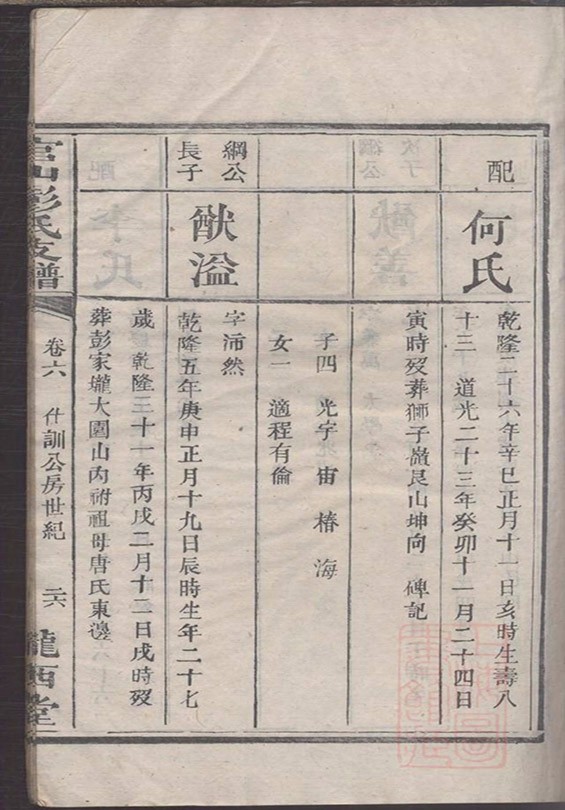 配
何氏
乾隆二十六年辛巳正月十一日亥時生壽八
十三 道光二十三年癸卯十一月二十四日
寅時歿葬獅子嶺艮山坤向 碑記
子四 光宇宙 椿 海
女一 適程有倫
綱公
長子
猷溢
字沛然
乾隆五年庚申正月十九日辰時生年二十七
歲 乾隆三十一年丙戌二月十二日戌時歿
葬彭家壠大園山內祔祖母唐氏東邊
官山彭氏支譜
卷六 仕訓公房世紀 二六
隴西堂